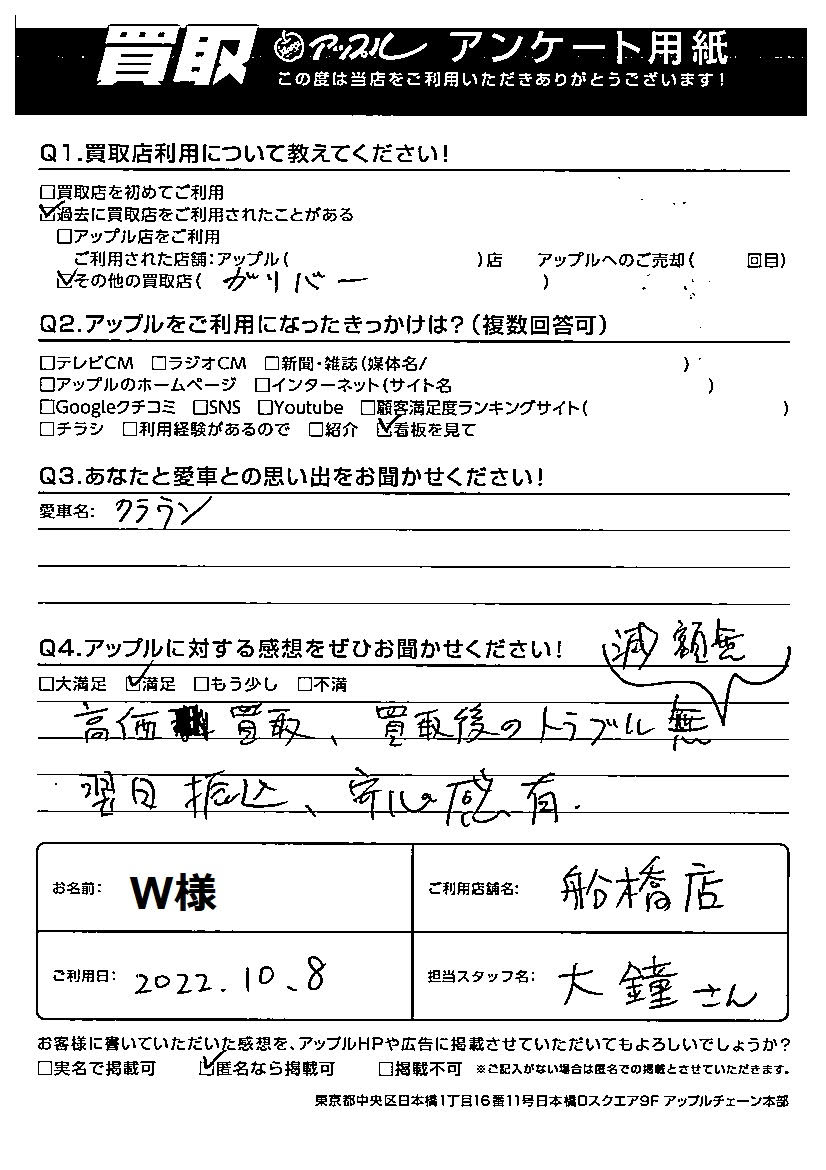 買取 アップル アンケート用紙
この度は当店をご利用いただきありがとうございます!
Q1.買取店利用について教えてください!
□買取店を初めてご利用
☑過去に買取店をご利用されたことがある
□アップル店をご利用
ご利用された店舗:アップル( )店 アップルへのご売却( 回目)
☑その他の買取店( ガリバー )
Q2.アップルをご利用になったきっかけは?(複数回答可)
□テレビCM □ラジオCM □新聞・雑誌(媒体名/ )
□アップルのホームページ □インターネット(サイト名 )
□Googleクチコミ □SNS □Youtube □顧客満足度ランキングサイト( )
□チラシ □利用経験があるので □紹介 ☑看板を見て
Q3.あなたと愛車との思い出をお聞かせください!
愛車名: クラウン
Q4.アップルに対する感想をぜひお聞かせください!
減額無
□大満足 ☑満足 □もう少し □不満
高価 買取、買取後のトラブル無
翌日振込、安心感有.
お名前: W様 ご利用店舗名: 船橋店
ご利用日: 2022.10.8 担当スタッフ名: 大鐘さん
お客様に書いていただいた感想を、アップルHPや広告に掲載させていただいてもよろしいでしょうか?
□実名で掲載可 ☑匿名なら掲載可 □掲載不可 ※ご記入がない場合は匿名での掲載とさせていただきます。
東京都中央区日本橋1丁目16番11号日本橋Dスクエア9F アップルチェーン本部